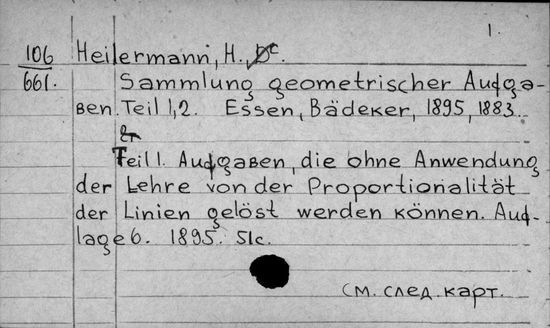 1.
106 Heilermann, H. Dr.
661. Sammlung geometrischer Aufga-
ben. Teil 1, 2. Essen, Bädeker, 1895, 1883.
Teil 1. Aufgaben, die ohne Anwendung
der Lehre von der Proportionalität
der Linien gelöst werden können. Auf-
lage 6. 1895. 51c.
См. след. карт.